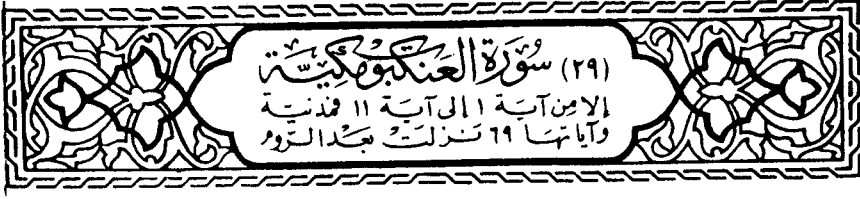 (٢٩) سُورَة العَنكبوت مكيّة
إلا من آية ١ إلى آية ١١ فمدنية
وآياتها ٦٩ نزلت بعد الروم